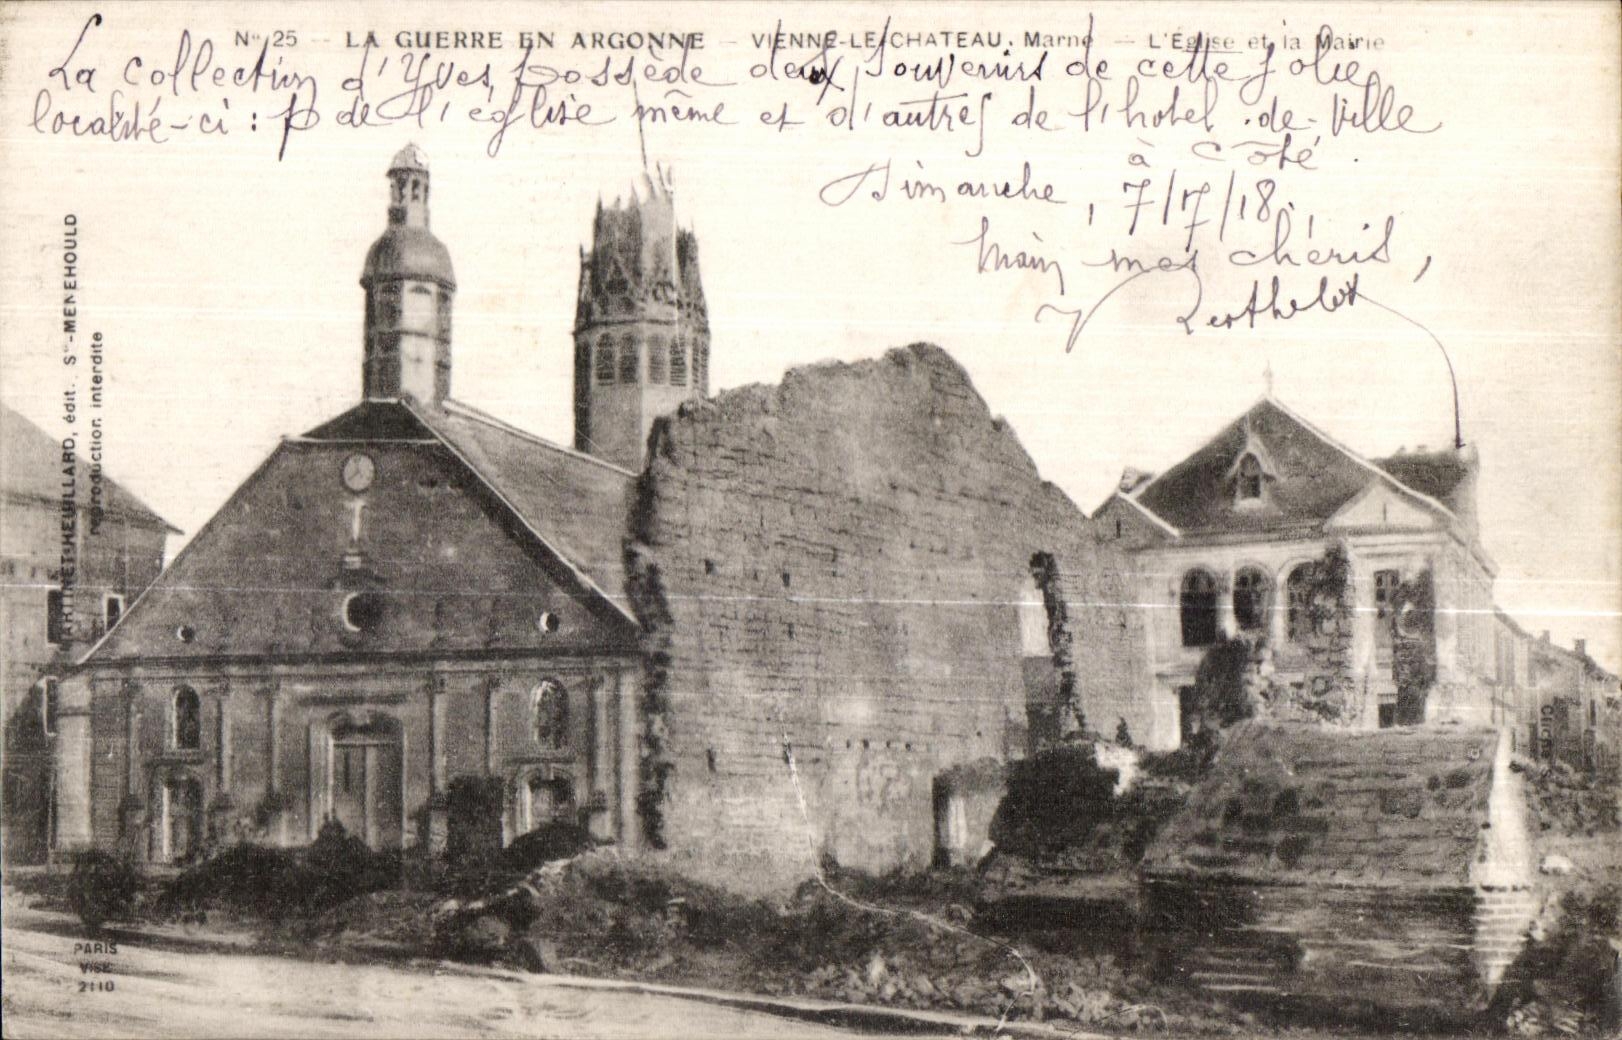 No 25 — LA GUERRE EN ARGONNE — VIENNE-LE-CHATEAU, Marne — L'Église et la Mairie
La collection d'Yves possède deux souvenirs de cette jolie
localité-ci : de l'église même et d'autres de l'hotel-de-Ville
à côté.
Dimanche, 7/7/18.
mes chéris,
Berthelot
MARTINET-HEUILLARD, édit. Ste-MENEHOULD
reproduction interdite
PARIS
VISE
2110
Cliché